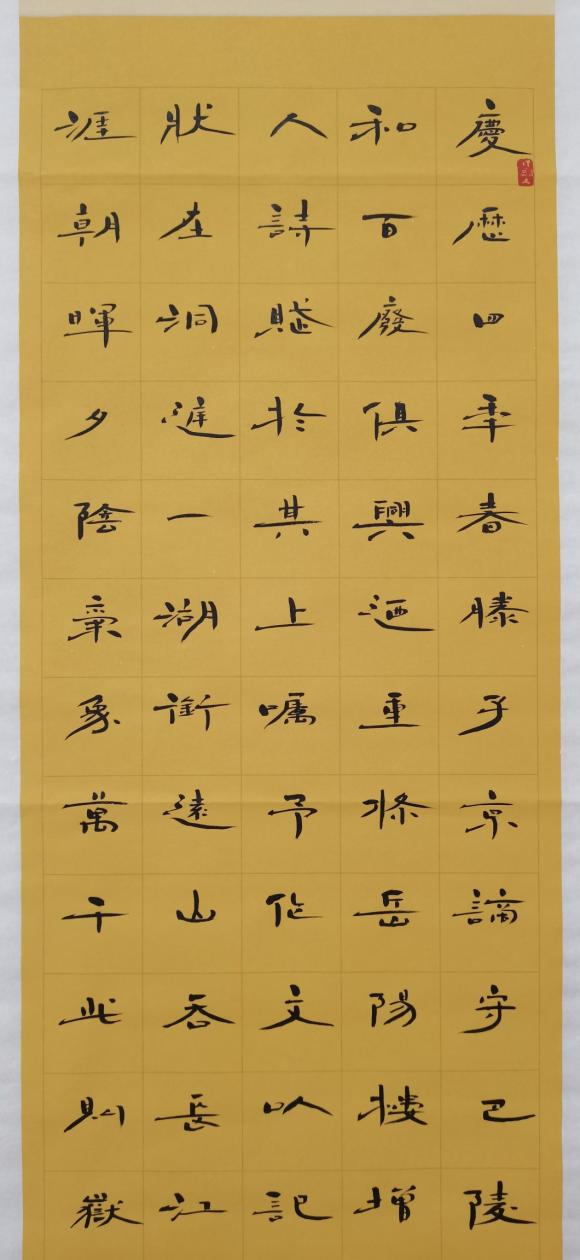 慶歷四年春滕子京謫守巴陵
和百廢俱興迺重脩岳陽樓增
人詩賦於其上囑予作文以記
狀在洞庭一湖銜遠山吞長江
涯朝暉夕陰氣象萬千此則嶽